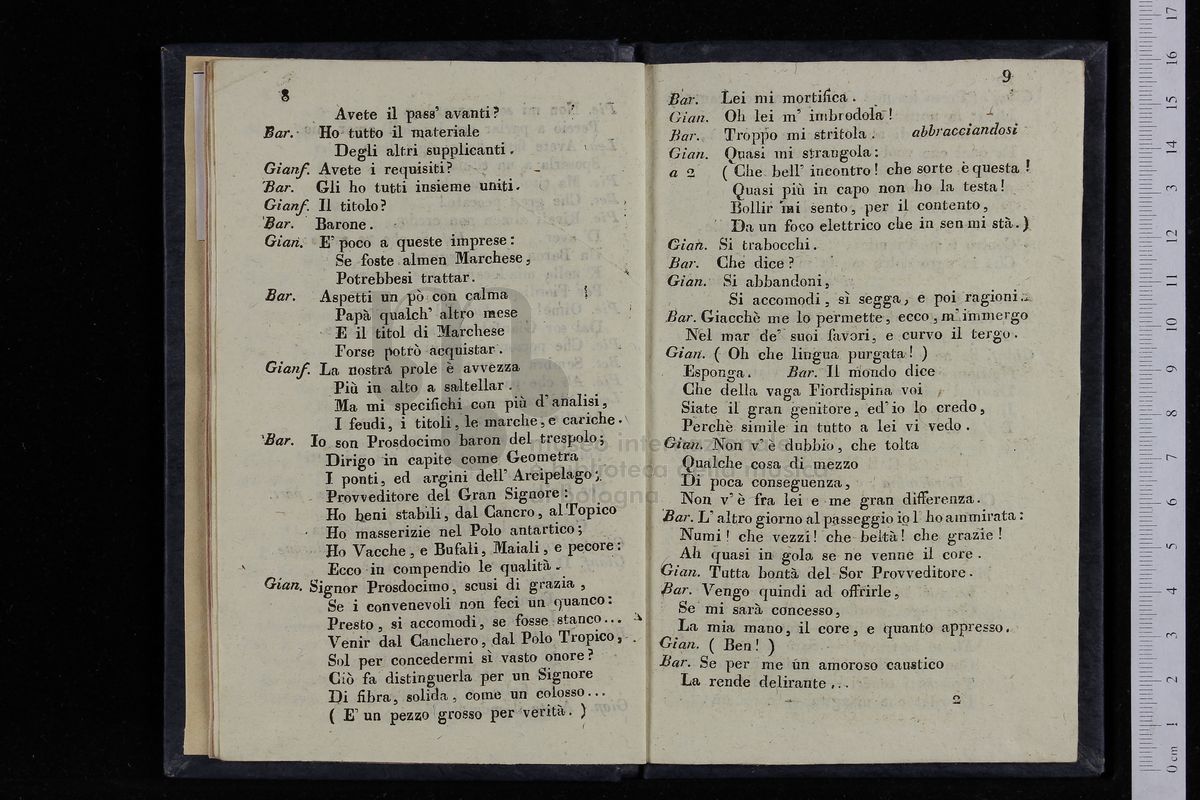 8
Avete il pass' avanti?
Bar. Ho tutto il materiale
Degli altri supplicanti.
Gianf. Avete i requisiti?
Bar. Gli ho tutti insieme uniti.
Gianf. Il titolo?
Bar. Barone.
Gian. E' poco a queste imprese:
Se foste almen Marchese,
Potrebbesi trattar.
Bar. Aspetti un pò con calma
Papà qualch' altro mese
E il titol di Marchese
Forse potrò acquistar.
Gianf. La nostra prole è avvezza
Più in alto a saltellar.
Ma mi specifichi con più d'analisi,
I feudi, i titoli, le marche, e cariche.
Bar. Io son Prosdocimo baron del trespolo;
Dirigo in capite come Geometra
I ponti, ed argini dell' Arcipelago;
Provveditore del Gran Signore:
Ho beni stabili, dal Cancro, al Topico
Ho masserizie nel Polo antartico;
Ho Vacche, e Bufali, Maiali, e pecore:
Ecco in compendio le qualità.
Gian. Signor Prosdocimo, scusi di grazia,
Se i convenevoli non feci un quanco:
Presto, si accomodi, se fosse stanco...
Venir dal Canchero, dal Polo Tropico,
Sol per concedermi sì vasto onore?
Ciò fa distinguerla per un Signore
Di fibra, solida, come un colosso...
( E' un pezzo grosso per verità. )
9
Bar. Lei mi mortifica.
Gian. Oh lei m' imbrodola!
Bar. Troppo mi stritola. abbracciandosi
Gian. Quasi mi strangola:
a 2 ( Che bell' incontro! che sorte è questa!
Quasi più in capo non ho la testa!
Bollir mi sento, per il contento,
Da un foco elettrico che in sen mi stà. )
Gian. Si trabocchi.
Bar. Che dice?
Gian. Si abbandoni,
Si accomodi, sì segga, e poi ragioni..
Bar. Giacchè me lo permette, ecco, m'immergo
Nel mar de' suoi favori, e curvo il tergo.
Gian. ( Oh che lingua purgata! )
Esponga. Bar. Il mondo dice
Che della vaga Fiordispina voi
Siate il gran genitore, ed' io lo credo,
Perchè simile in tutto a lei vi vedo.
Gian. Non v' è dubbio, che tolta
Qualche cosa di mezzo
Di poca conseguenza,
Non v' è fra lei e me gran differenza.
Bar. L' altro giorno al passeggio io l' ho ammirata:
Numi! che vezzi! che beltà! che grazie!
Ah quasi in gola se ne venne il core.
Gian. Tutta bontà del Sor Provveditore.
Bar. Vengo quindi ad offrirle,
Se mi sarà concesso,
La mia mano, il core, e quanto appresso.
Gian. ( Ben! )
Bar. Se per me un amoroso caustico
La rende delirante...
2
museo internazionale
e biblioteca della musica
di bologna